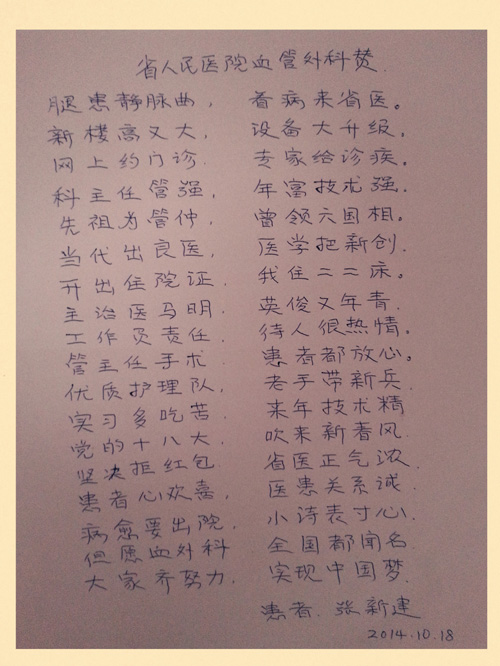 省人民医院血管外科赞.
腿患静脉曲， 看病来省医。
新楼高又大， 设备大升级，
网上约门诊. 专家给诊疾。
科主任管强， 年富技术强.
先祖为管仲， 曾领六国相。
当代出良医， 医学把新创.
开出住院证. 我住二二床。
主治医马明. 英俊又年青.
工作负责任. 待人很热情。
管主任手术. 患者都放心。
优质护理队. 老手带新兵.
实习多吃苦. 来年技术精
党的十八大. 吹来新春风.
坚决拒红包. 省医正气浓.
患者心欢喜， 医患关系诚.
病愈要出院. 小诗表寸心.
但愿血外科 全国都闻名.
大家齐努力. 实现中国梦.
患者. 张新建
2014.10.18